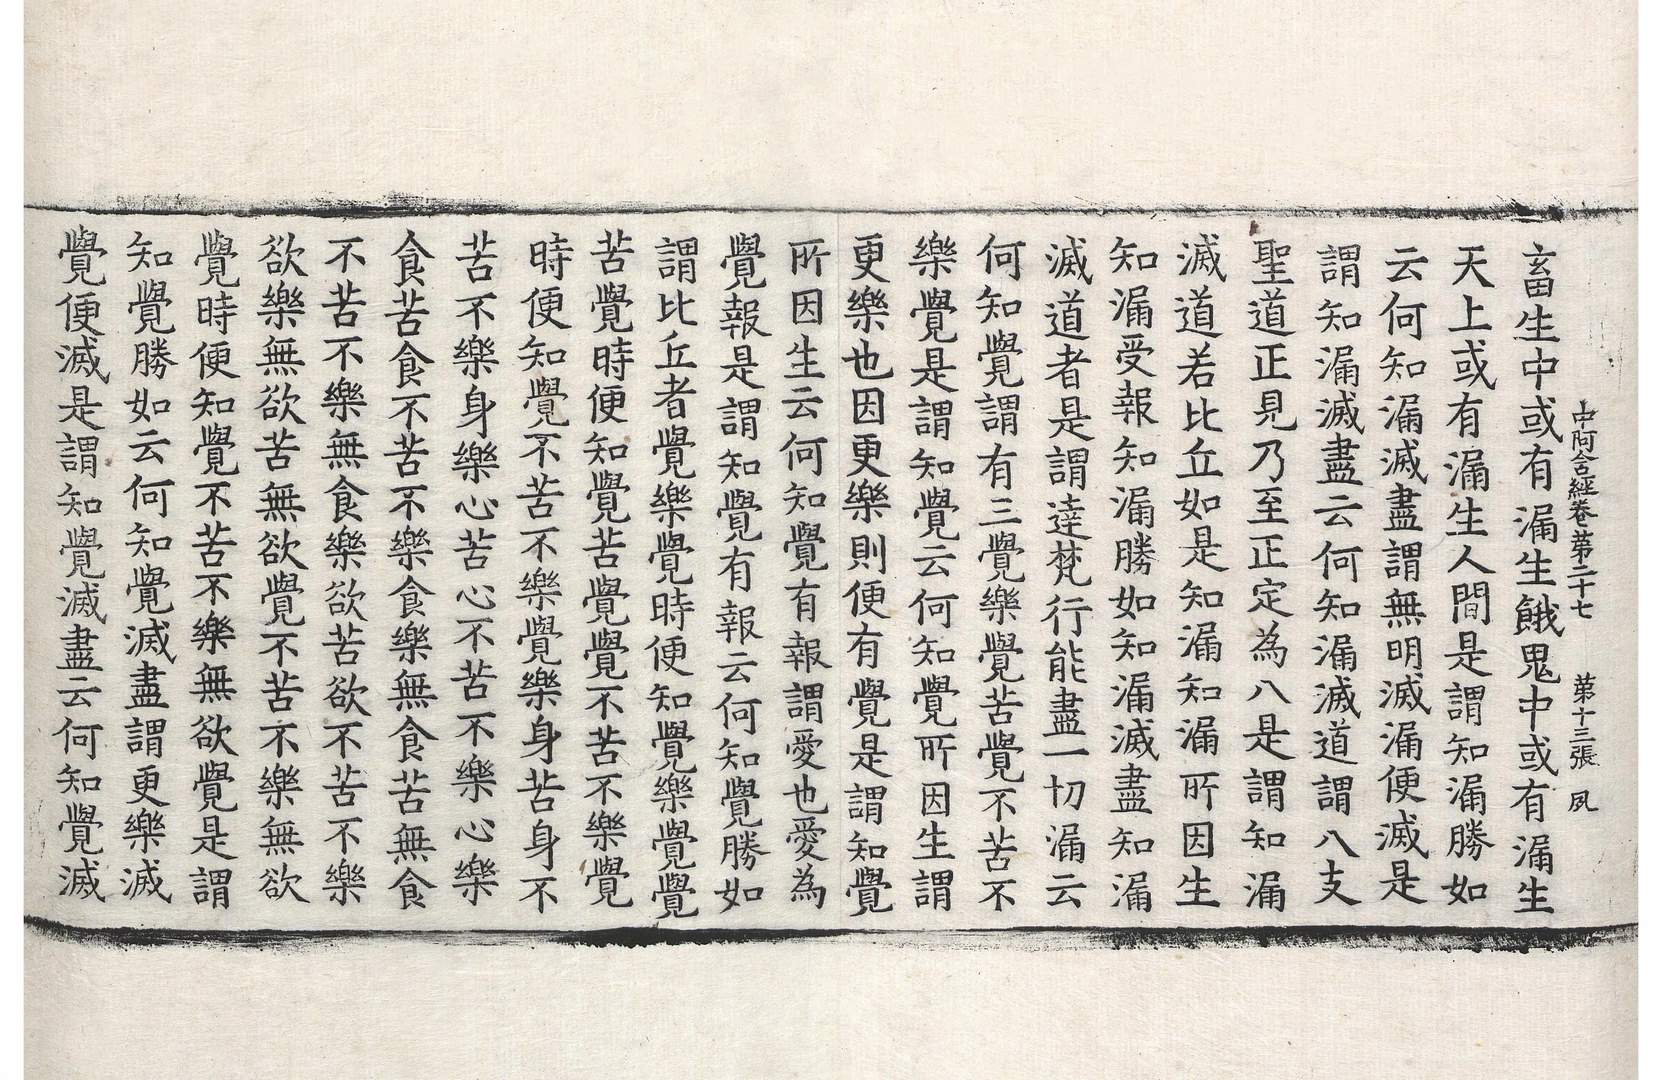 中阿含經卷第二十七 第十三張 夙
畜生中或有漏生餓鬼中或有漏生
天上或有漏生人間是謂知漏勝如
云何知漏滅盡謂無明滅漏便滅是
謂知漏滅盡云何知漏滅道謂八支
聖道正見乃至正定為八是謂知漏
滅道若比丘如是知漏知漏所因生
知漏受報知漏勝如知漏滅盡知漏
滅道者是謂達梵行能盡一切漏云
何知覺謂有三覺樂覺苦覺不苦不
樂覺是謂知覺云何知覺所因生謂
更樂也因更樂則便有覺是謂知覺
所因生云何知覺有報謂愛也愛為
覺報是謂知覺有報云何知覺勝如
謂比丘者覺樂覺時便知覺樂覺覺
苦覺時便知覺苦覺覺不苦不樂覺
時便知覺不苦不樂覺樂身苦身不
苦不樂身樂心苦心不苦不樂心樂
食苦食不苦不樂食樂無食苦無食
不苦不樂無食樂欲苦欲不苦不樂
欲樂無欲苦無欲覺不苦不樂無欲
覺時便知覺不苦不樂無欲覺是謂
知覺勝如云何知覺滅盡謂更樂滅
覺便滅是謂知覺滅盡云何知覺滅